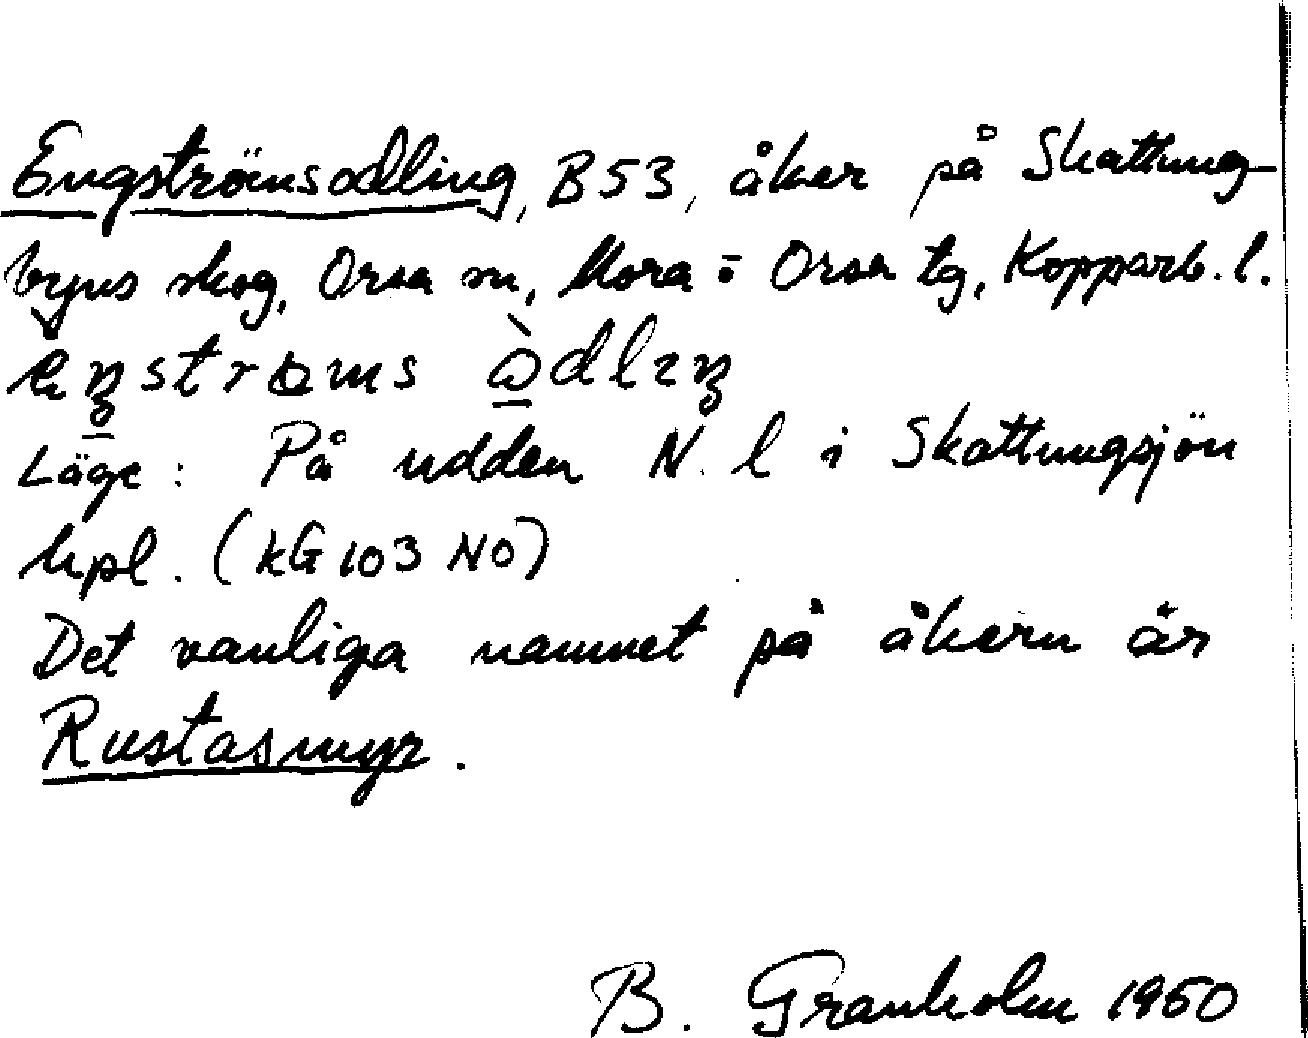 Engströmsodling, B53, åker på Skattung-
byns skog, Orsa sn, Mora o Orsa tg, Kopparb. l.
Läge: På udden N. l i Skattungsjön
hpl. (kG 103 NO)
Det vanliga namnet på åkern är
Rustasmyr.
B. Granholm 1960